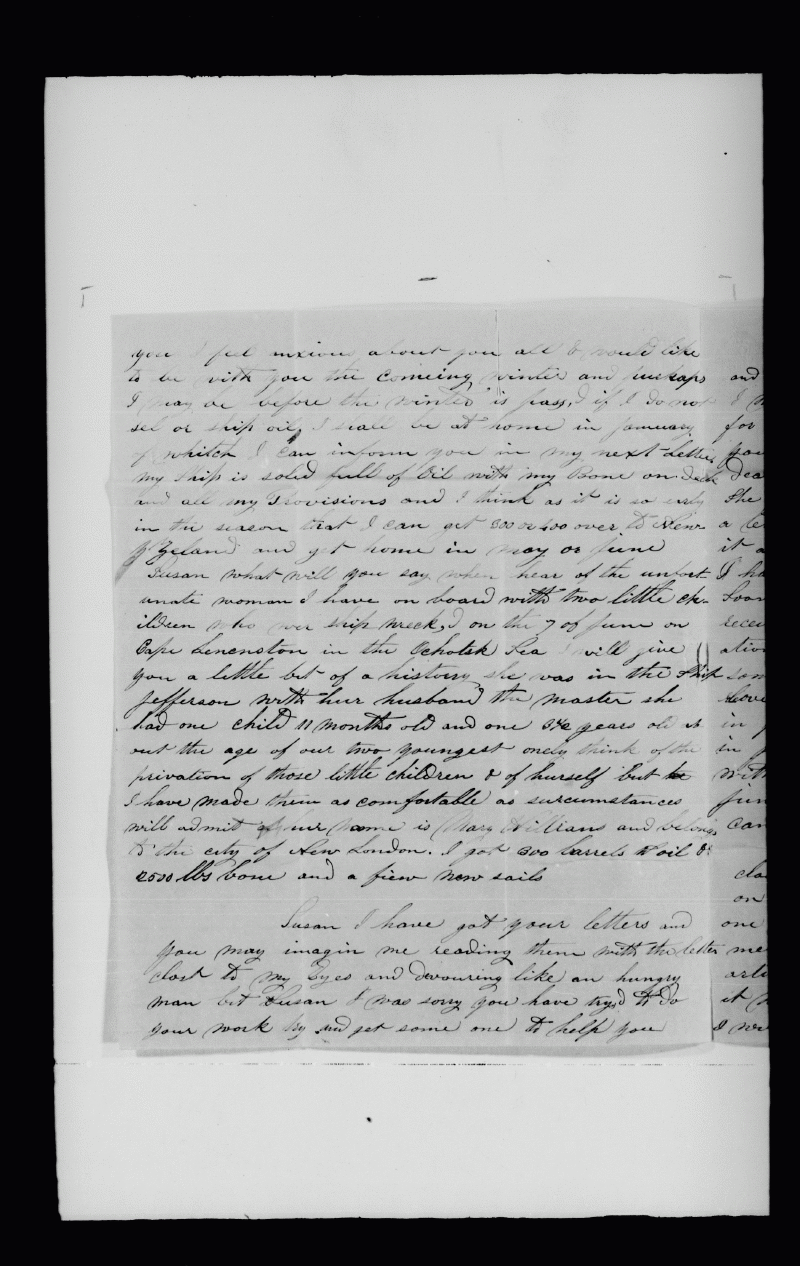 you I feel anxious about you all & would like
to be with you the comeing winter and purhaps
I may be before the winter is pass,d if I do not
sel or ship oil, I shall be at home in january
of whitch I can inform you in my next letter
my ship is solid full of Oil with my Bone on deck
and all my Provisions and I think as it is so erly
in the season that I can get 300 or 400 over to New
Zeland and get home in may or june
Susan what will you say when hear of the unfort-
unate woman I have on board with two little ch-
ildren who wer ship wreck,d on the 7 of june on
Cape in the Ochotsk Sea I will give
you a little bit of a historry she was in the Ship
Jefferson with hur husband the master she
had one child 11 months old and one 3½ years old ab
out the age of our two youngest onely think of the
privation of those little children & of hurself but
I have made them as comfortable as surcumstances
will admit of hur name is Mary Willians and belongs
to the city of New London. I got 300 barrels of oil &
2500 lbs bone and a fiew new sails
Susan I have got your letters and
you may imagin me reading them with the letter
clost to my Eyes and devouring like an hungry
man but Susan I was sorry you have try,d to do
your work by and get some one to help you
and
for
you
The
it
in
in
with
can
on
one
me
it